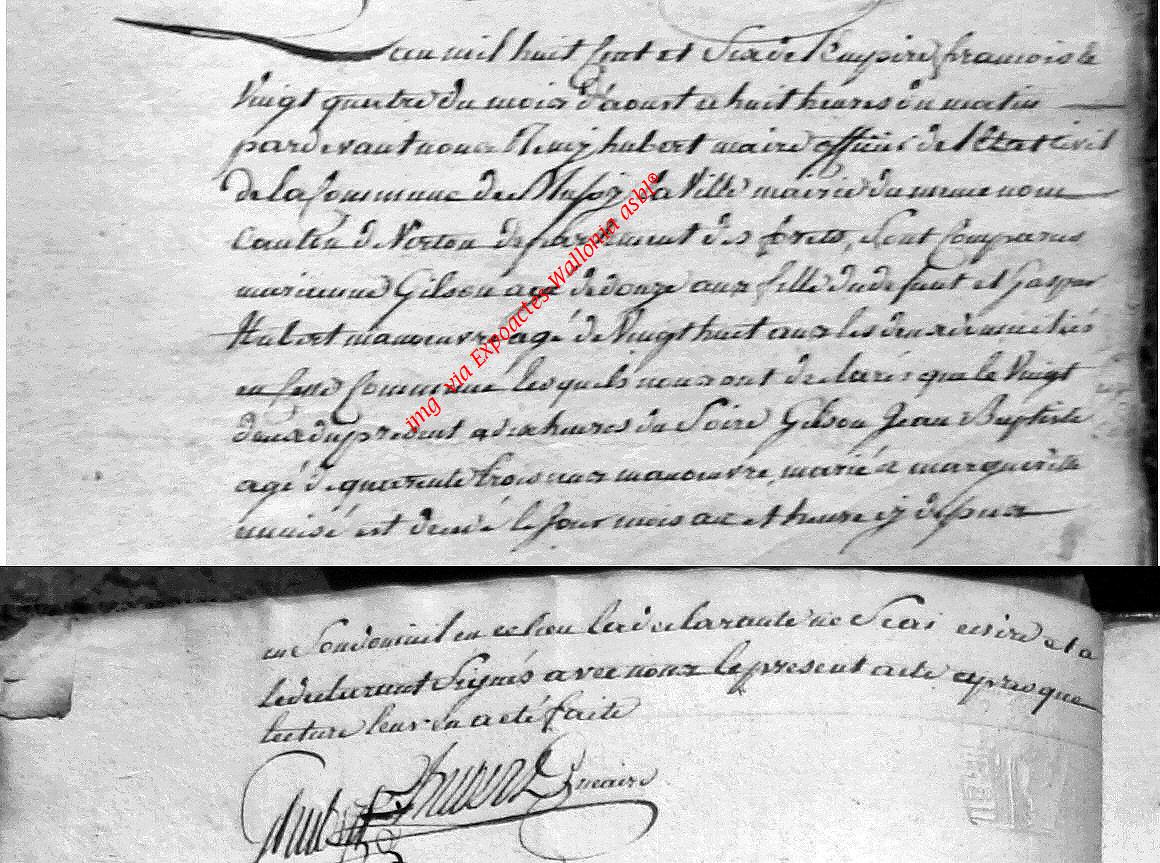 L'an mil huit cent et six de l'Empire francois le
Vingt quatre du mois d'aoust a huit heures du matin
pardevant nous hubert maire officier de l'Etat Civil
de la Commune de Mussy la Ville mairie du meme nom
Canton de Virton departement des forets, sont Comparus
marienne Gilson agé de douze ans fille du defunt et Gaspar
Hubert manoeuvre agé de Vingt huit ans les deux domiciliés
en cette Commune lesquels nous ont declarés que le Vingt
deux du present a six heures du Soire Gilson Jean Baptiste
agé de quarente trois ans manoeuvre, marié a marguerite
est decedé le Jour mois an et heure cy dessus
en Son domicil en ce lieu la declarante ne Scai ecrire et a
le declarant Signés avec nous le present acte apres que
lecture leur en a eté faite
hubert maire
img via Expoactes-Wallonia asbl®